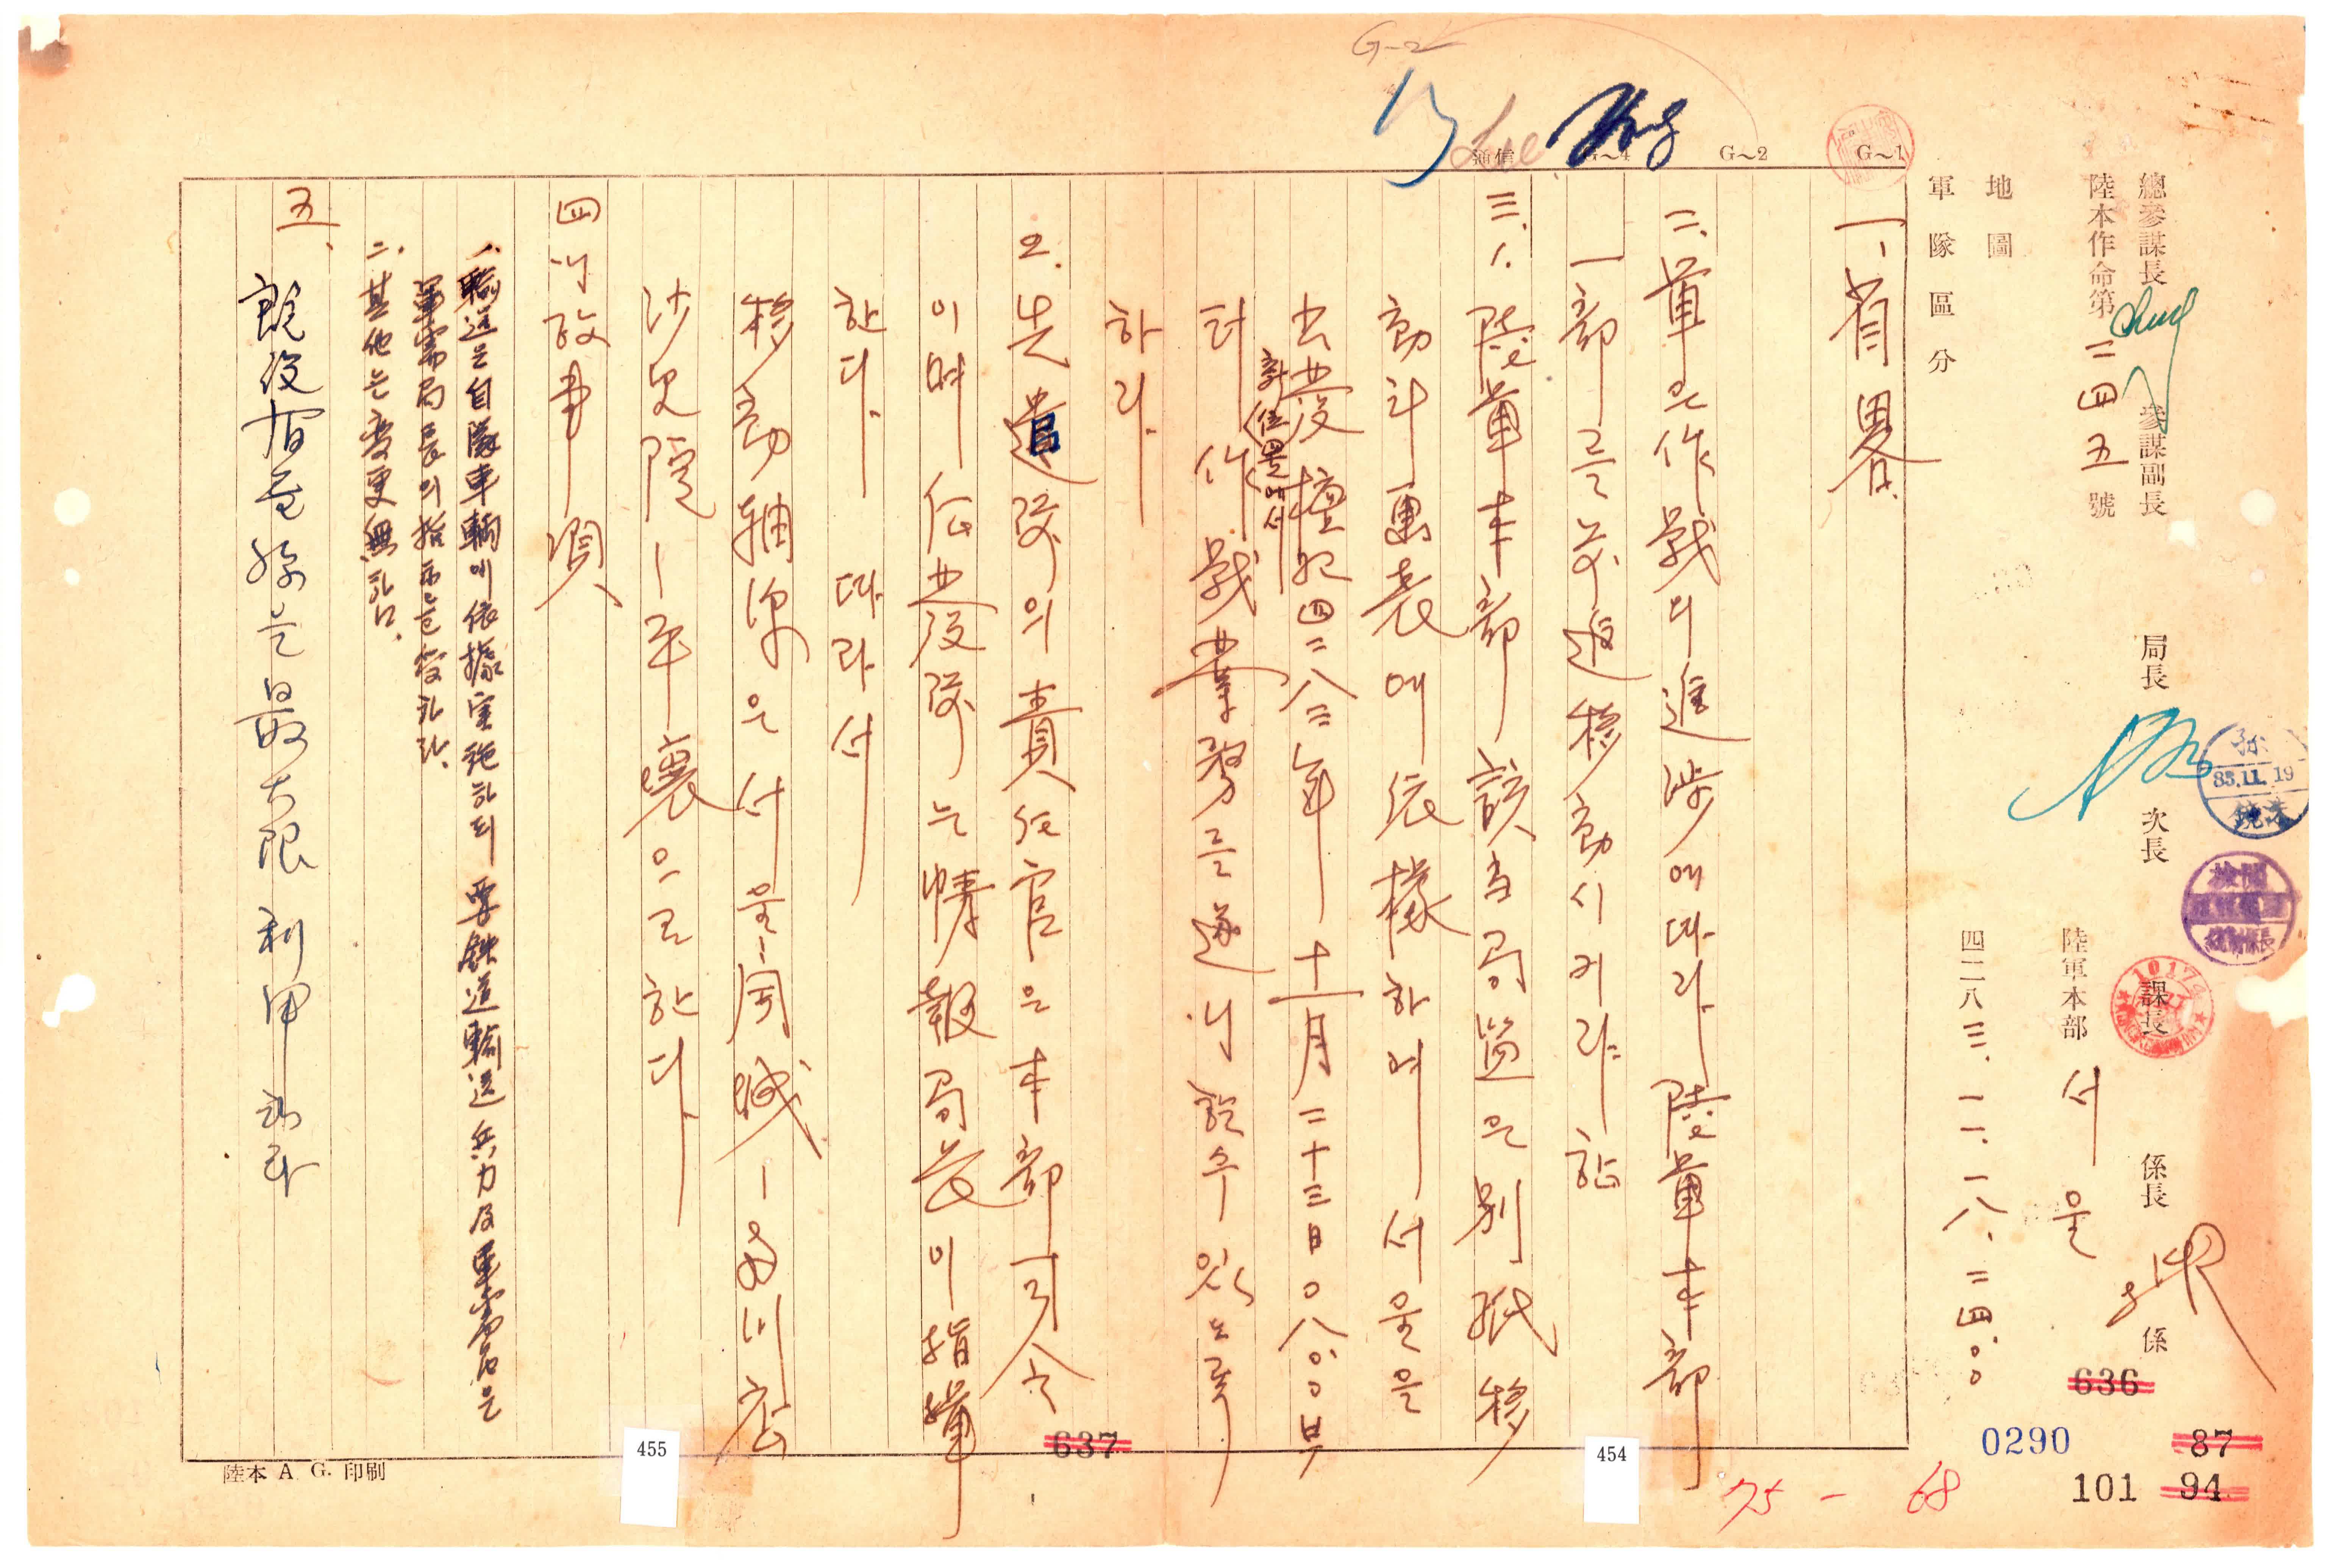 總參謀長 參謀副長 局長 次長 課長 係長 係
陸本作命第二四五號
陸軍本部 서울
地圖
四二八三.一一.一八.二四:〇〇
軍隊區分
G~1
G~2
G~4
通信
G-2
Lee
83.11.19
一、省畧
二、軍은 作戰의 進涉에 따라 陸軍本部
一部를 前進 移動시키려 함
三.1. 陸軍本部 該當局監은 別紙 移
動計画表에 依據하여 서울은
出發 檀紀四二八三年 十一月二十三日〇八:〇〇부
터 作戰業務를 遂行할수 있는
하라.
2. 先遣隊의 責任官은 本部司令
이며 后發隊는 情報局長이 指揮
한다. 따라서
移動軸線은 서울-開城-
沙里院-平壤으로 한다.
四 行政事項
一、輸送은 自隊車輛에 依據 實施하되 要鐵道輸送 兵力及軍需品은
軍需局長의 指示를 받으라.
二、其他는 變更無함.
五、
既設 有無線은 最大限 利用하라
陸本 A G. 印刷
636
637
0290
87
101
94
454
455
75 - 68